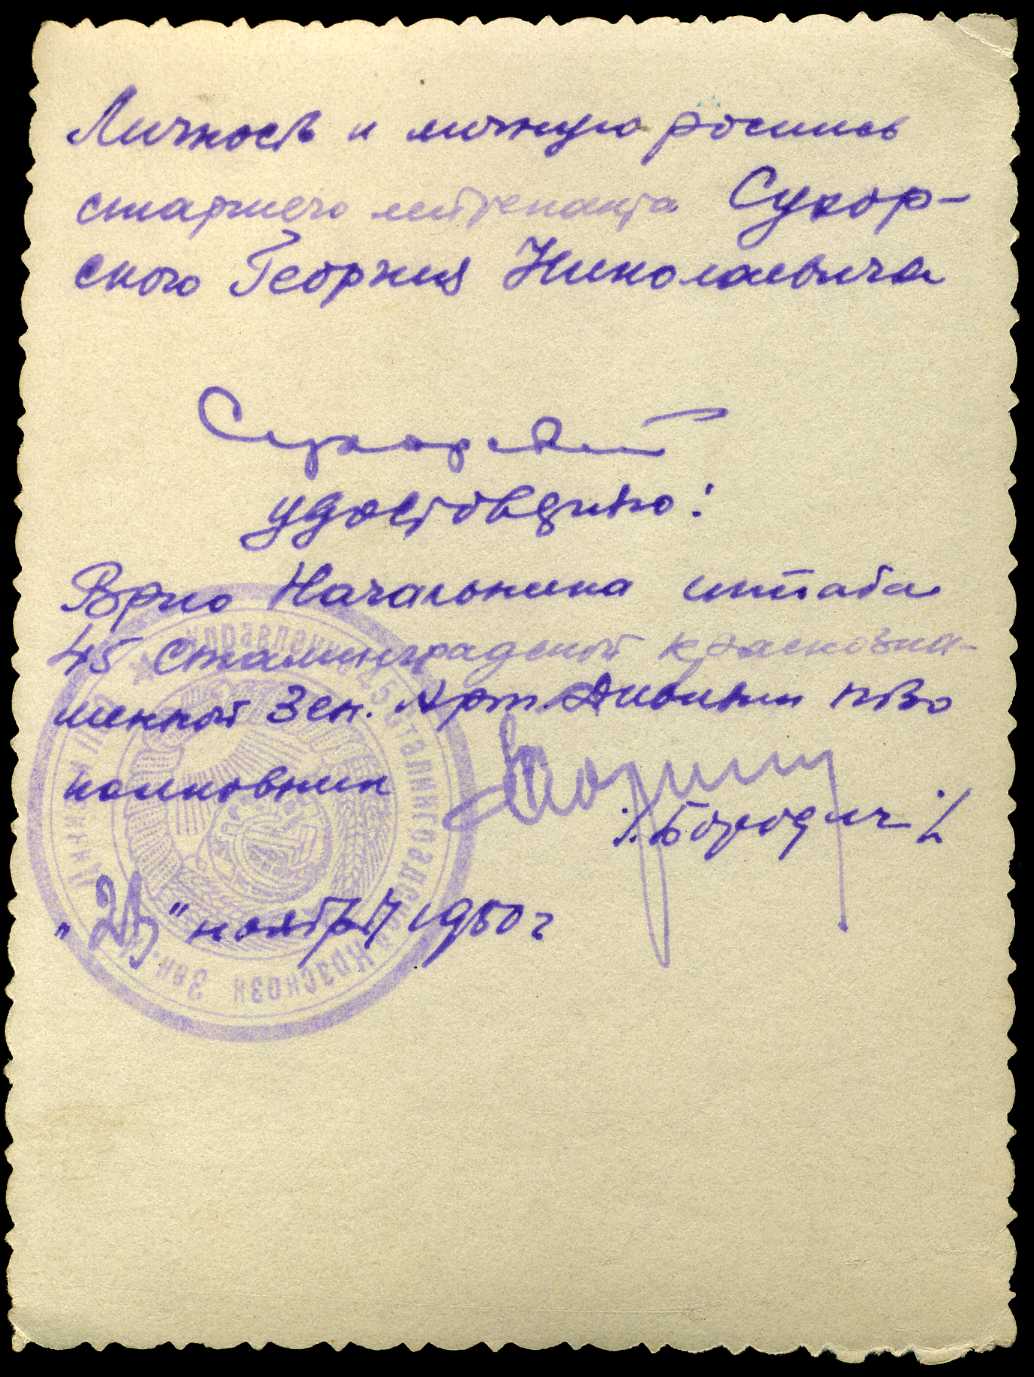 Личность и личную роспись
старшего лейтенанта Сухор-
ского Георгия Николаевича
Сухорский
удостоверяю:
Врио Начальника штаба
45 Сталинградской краснозна-
менной Зен. Арт Дивизии ПВО
полковник
/Бородич/
"23" ноября 1950 г
Управление 45 Сталинградской Краснозн Зен.